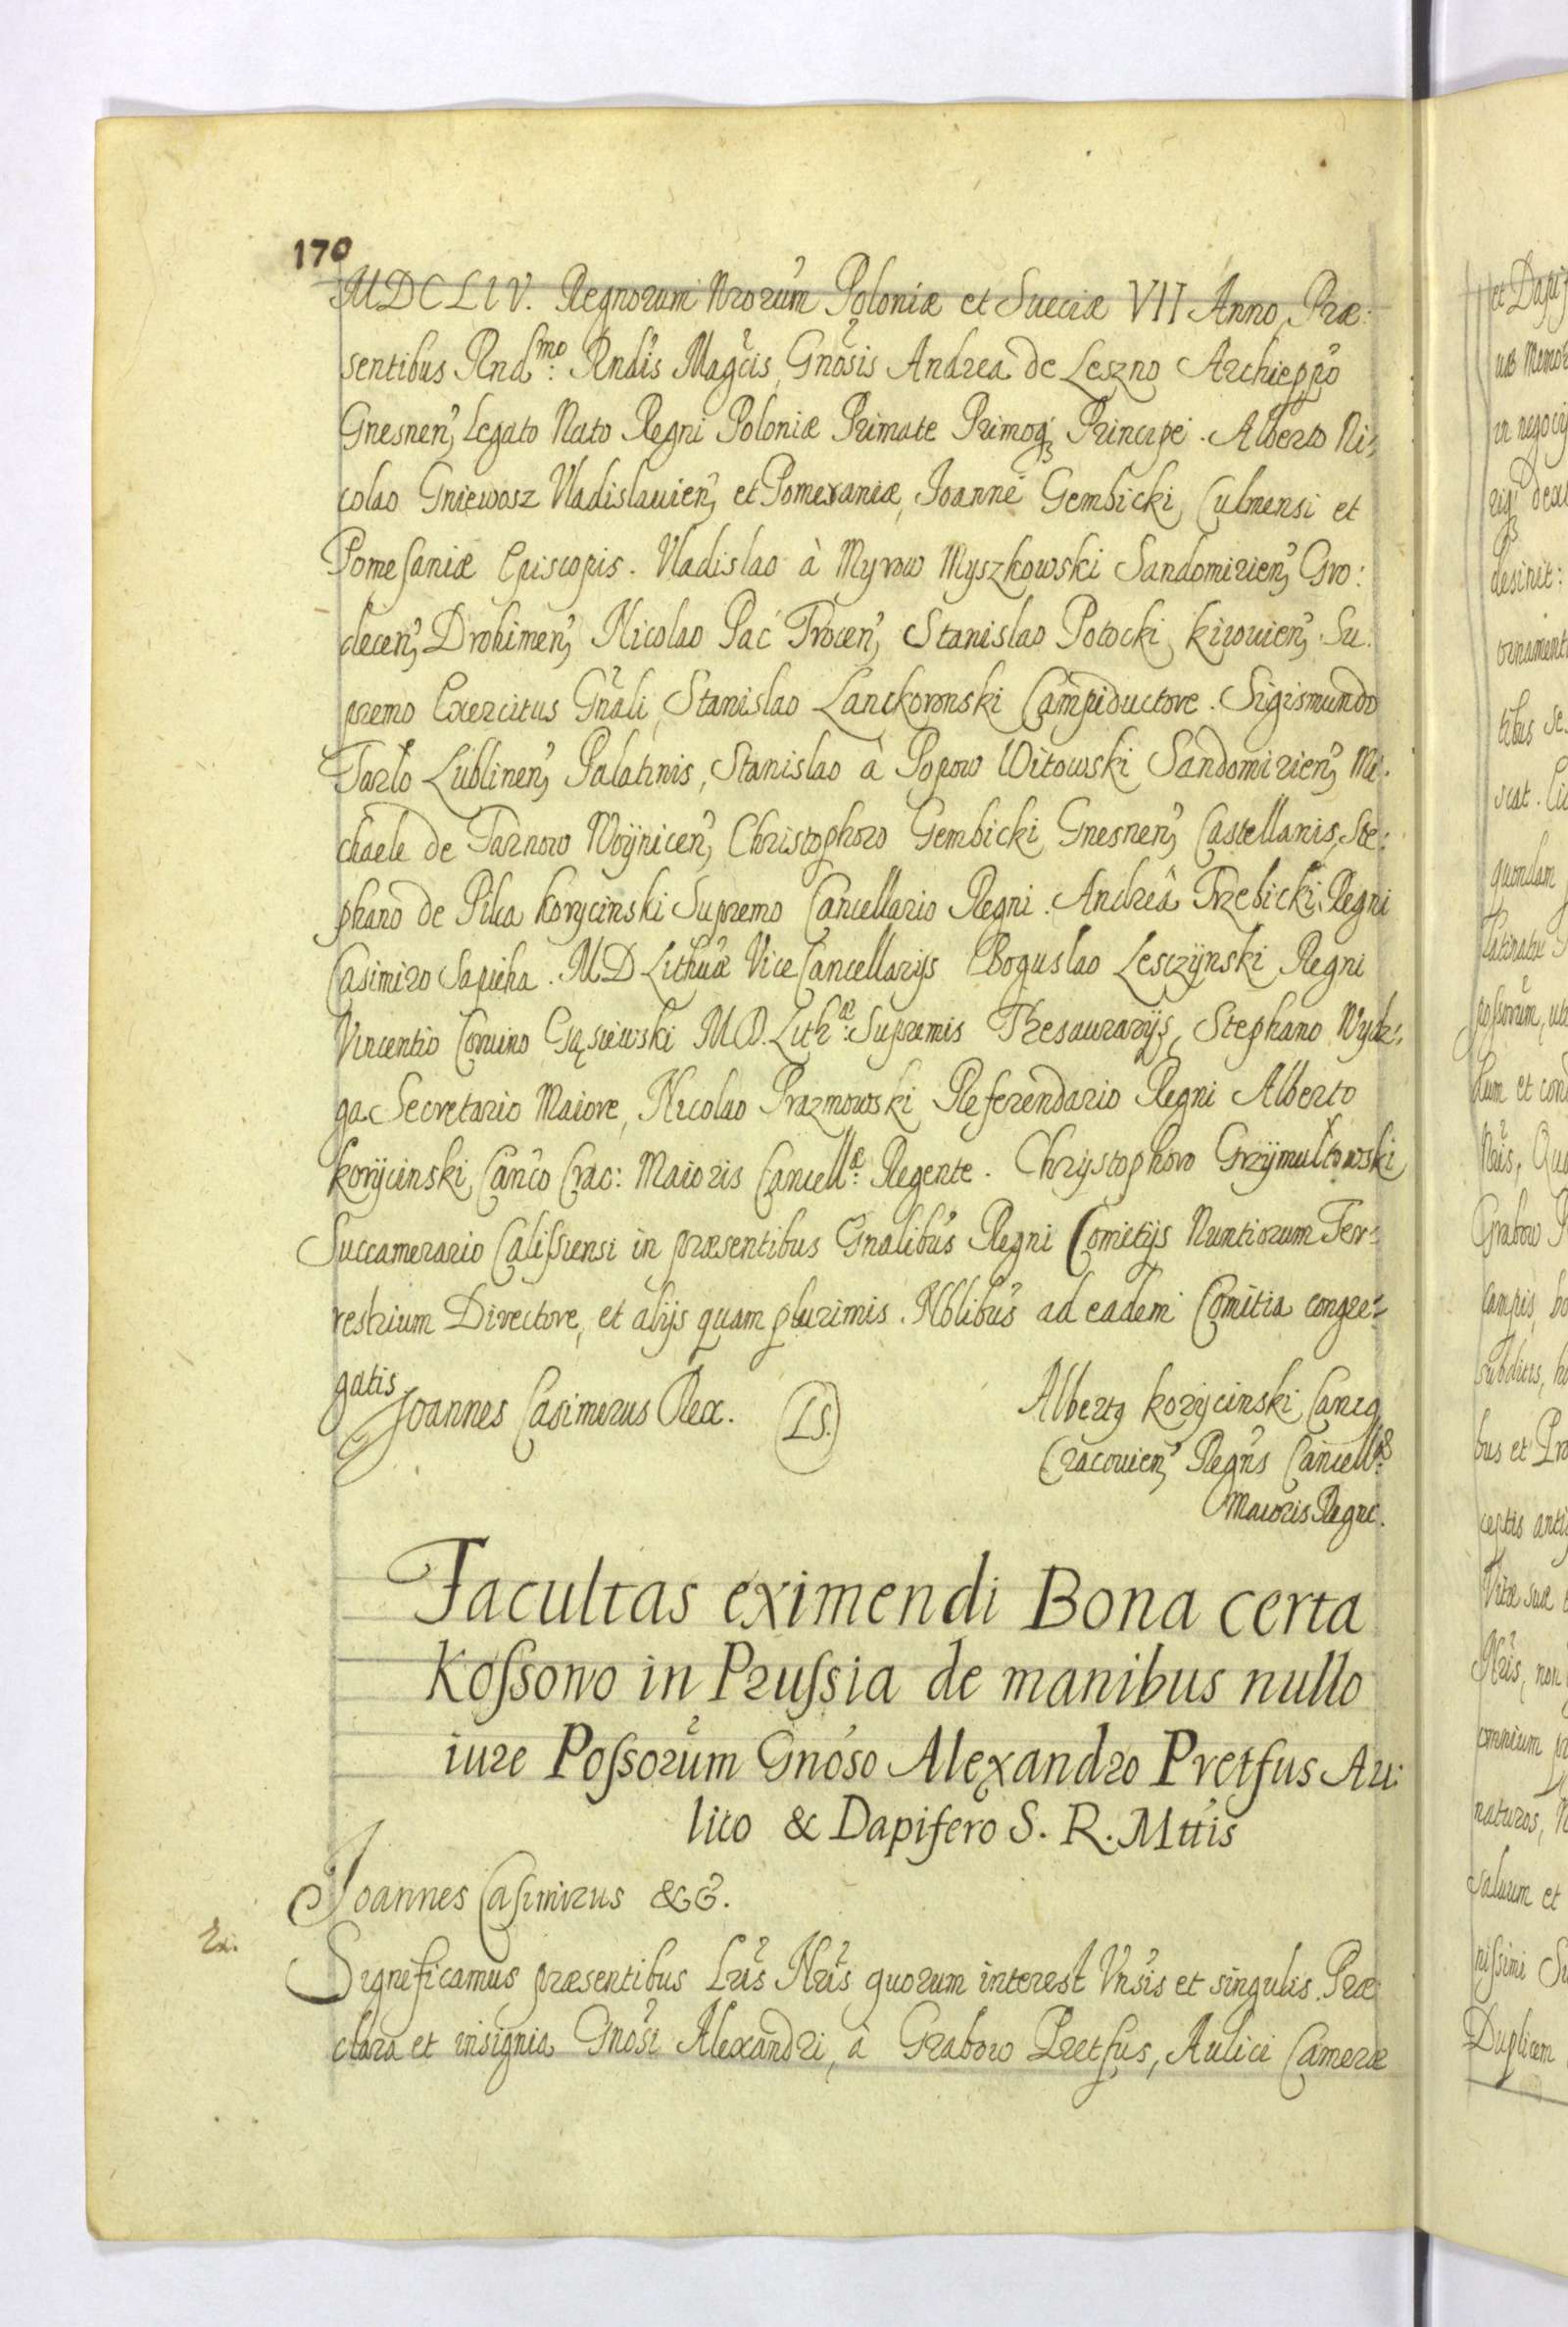 170
MDCLIV. Regnorum Nrorum Poloniæ et Sueciæ VII Anno, Præ:
sentibus Rndmo: Rndis Magcis, Gnosis Andrea de Leszno Archieppo
Gnesnen, Legato Nato Regni Poloniæ Primate Primoq; Principe. Alberto Ni:
colao Gniewosz Vladislauien, et Pomeraniæ, Joanne Gembicki, Culmensi et
Pomesaniæ Episcopis. Vladislao à Myrow Myszkowski Sandomirien, Gro:
decen, Drohimen, Nicolao Pać Trocen, Stanislao Potocki, Kiiouien, Su.
premo Exercitus Gnali, Stanislao Lanckoronski Campiductore. Sigismundo
Tarło Lublinen, Palatinis, Stanislao à Popow Witowski Sandomirien, Mi.
chaele de Tarnow Woÿnicen, Christophoro Gembicki, Gnesnen, Castellanis, Ste:
phano de Pilca Korycinski Supremo Cancellario Regni. Andreâ Trzebicki, Regni
Casimiro Sapieha. M D Lithuæ Vice Cancellarijs Boguslao Lesczÿnski Regni
Vincentio Coruino Gąsiewski M D. Lithæ: Supremis Thesaurarijs, Stephano Wydz:
ga Secretario Maiore, Nicolao Prazmowski Referendario Regni Alberto
Korÿcinski, Canco Crac: Maioris Cancellæ: Regente. Chrystophoro Grzÿmułtowski
Succamerario Calissiensi in præsentibus Gnalibus Regni Comitijs Nuntiorum Ter:
restrium Directore, et alijs quam plurimis. Nblibus ad eadem Comitia congre:
gatis
Joannes Casimirus Rex. L S. Albertg Korÿcinski, Cancg
Cracouien, Regns Cancellæ:
Maioris Regni.
Facultas eximendi Bona certa
Kossowo in Prussia de manibus nullo
iure Possorum Gnoso Alexandro Pretfus Au:
lico & Dapifero S. R. Mttis
Joannes Casimirus &c &.
Ex.
Significamus præsentibus Lris Nris quorum interest Vnsis et singulis. Præ
clara et insignia Gnosi Alexandri, à Grabow Pretfus, Aulici Cameræ